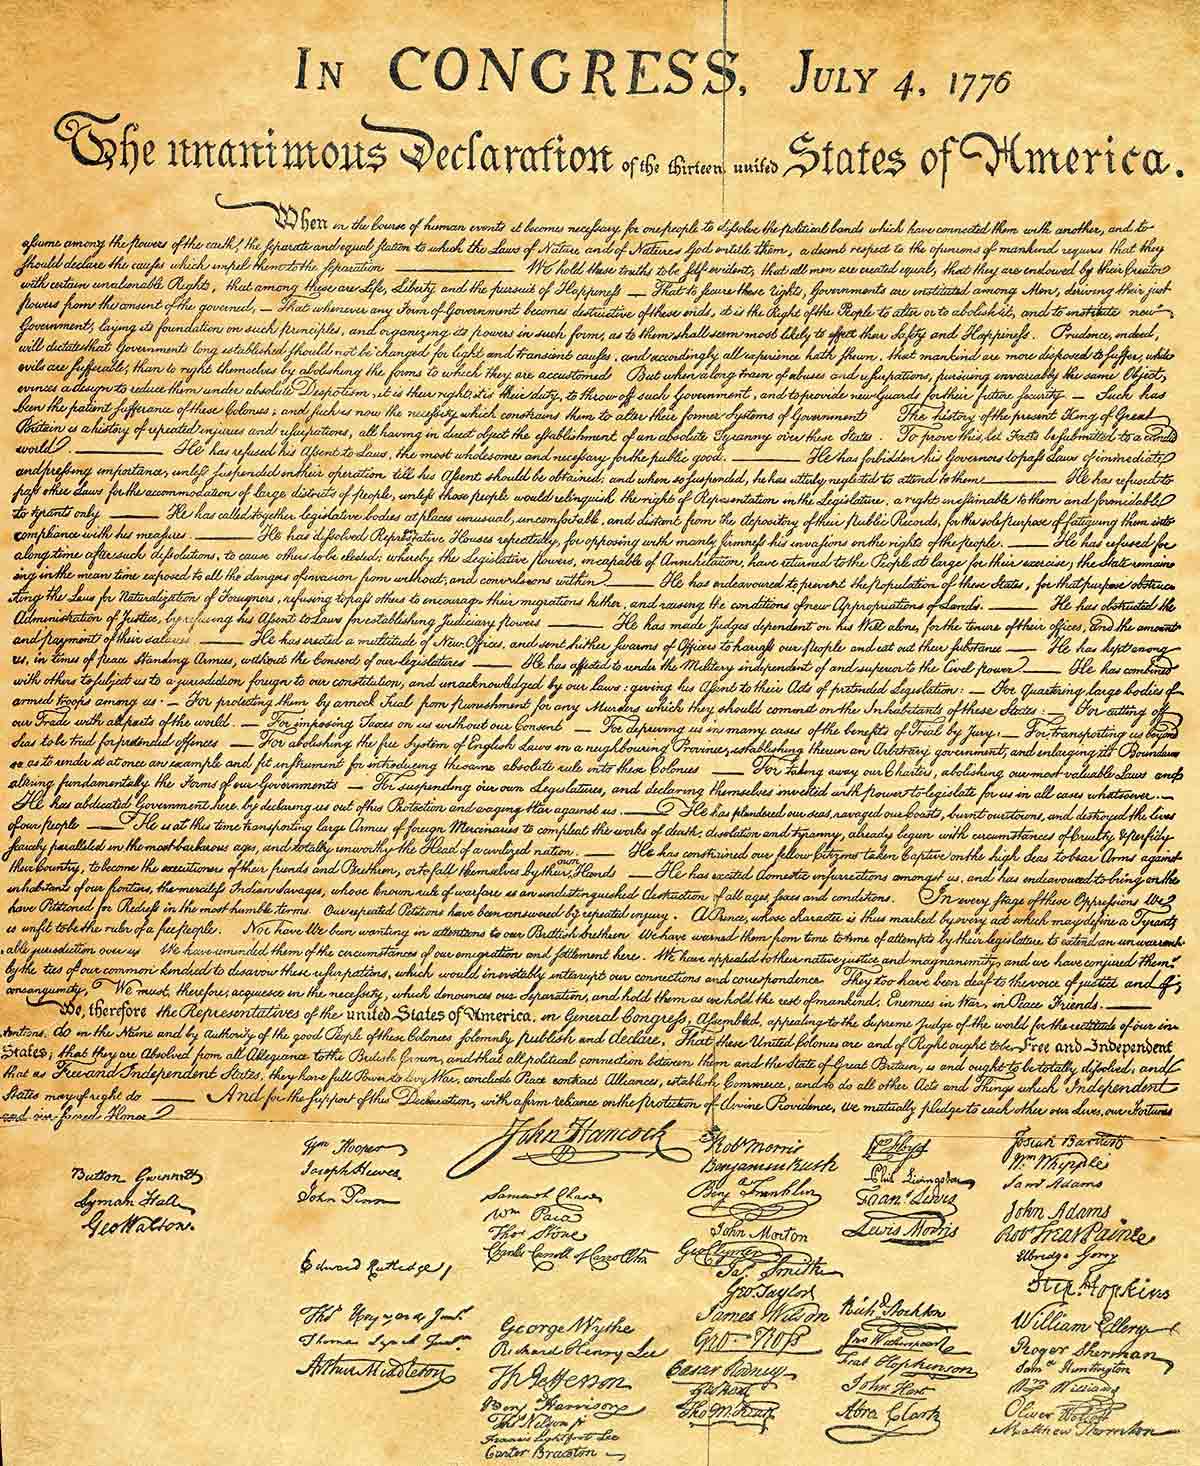 In CONGRESS, July 4, 1776
The unanimous Declaration of the thirteen united States of America.
When in the Course of human events it becomes necessary for one people to dissolve the political bands which have connected them with another, and to
assume among the powers of the earth, the separate and equal station to which the Laws of Nature and of Nature's God entitle them, a decent respect to the opinions of mankind requires that they
should declare the causes which impel them to the separation — We hold these truths to be self evident, that all men are created equal, that they are endowed by their Creator
with certain unalienable Rights, that among these are Life, Liberty and the pursuit of Happiness — That to secure these rights, Governments are instituted among Men, deriving their just
powers from the consent of the governed, — That whenever any Form of Government becomes destructive of these ends, it is the Right of the People to alter or to abolish it, and to institute new
Government, laying its foundation on such principles, and organizing its powers in such form, as to them shall seem most likely to effect their Safety and Happiness. Prudence, indeed,
will dictate that Governments long established should not be changed for light and transient causes, and accordingly all experience hath shewn, that mankind are more disposed to suffer, while
evils are sufferable, than to right themselves by abolishing the forms to which they are accustomed But when a long train of abuses and usurpations, pursuing invariably the same Object,
evinces a design to reduce them under absolute Despotism, it is their right, it is their duty, to throw off such Government, and to provide new Guards for their future security — Such has
been the patient sufferance of these Colonies; and such is now the necessity which constrains them to alter their former Systems of Government The history of the present King of Great
Britain is a history of repeated injuries and usurpations, all having in direct object the establishment of an absolute Tyranny over these States. To prove this, let Facts be submitted to a candid
world. — He has refused his Assent to Laws, the most wholesome and necessary for the public good. — He has forbidden his Governors to pass Laws of immediate
and pressing importance, unless suspended in their operation till his Assent should be obtained; and when so suspended, he has utterly neglected to attend to them — He has refused to
pass other Laws for the accommodation of large districts of people, unless those people would relinquish the right of Representation in the Legislature, a right inestimable to them and formidable
to tyrants only — He has called together legislative bodies at places unusual, uncomfortable, and distant from the depository of their Public Records, for the sole purpose of fatiguing them into
compliance with his measures. — He has dissolved Representative Houses repeatedly, for opposing with manly firmness his invasions on the rights of the people. — He has refused for
a long time after such dissolutions, to cause others to be elected; whereby the Legislative powers, incapable of Annihilation, have returned to the People at large for their exercise; the State remain-
ing in the mean time exposed to all the dangers of invasion from without, and convulsions within — He has endeavoured to prevent the population of these States, for that purpose obstruc-
ting the Laws for Naturalization of Foreigners, refusing to pass others to encourage their migrations hither, and raising the conditions of new Appropriations of Lands. — He has obstructed the
Administration of Justice, by refusing his Assent to Laws for establishing Judiciary powers — He has made Judges dependent on his Will alone, for the tenure of their offices, and the amount
and payment of their salaries — He has erected a multitude of New Offices, and sent hither swarms of Officers to harass our people and eat out their substance — He has kept among
us, in times of peace Standing Armies, without the Consent of our legislatures — He has affected to render the Military independent of and superior to the Civil power — He has combined
with others to subject us to a jurisdiction foreign to our constitution, and unacknowledged by our laws: giving his Assent to their Acts of pretended Legislation: — For quartering large bodies of
armed troops among us. — For protecting them by a mock Trial from punishment for any Murders which they should commit on the Inhabitants of these States: — For cutting off
our Trade with all parts of the world. — For imposing Taxes on us without our Consent — For depriving us in many cases of the benefits of Trial by Jury. — For transporting us beyond
Seas to be tried for pretended offences — For abolishing the free System of English Laws in a neighbouring Province, establishing therein an Arbitrary government, and enlarging its Boundaries
so as to render it at once an example and fit instrument for introducing the same absolute rule into these Colonies — For taking away our Charters, abolishing our most valuable Laws and
altering fundamentally the Forms of our Governments — For suspending our own Legislatures, and declaring themselves invested with power to legislate for us in all cases whatsoever. —
He has abdicated Government here, by declaring us out of his Protection and waging War against us. — He has plundered our seas, ravaged our Coasts, burnt our towns, and destroyed the lives
of our people — He is at this time transporting large Armies of foreign Mercenaries to compleat the works of death, desolation and tyranny, already begun with circumstances of Cruelty & perfidy
scarcely paralleled in the most barbarous ages, and totally unworthy the Head of a civilized nation. — He has constrained our fellow Citizens taken Captive on the high Seas to bear Arms against
their Country, to become the executioners of their friends and Brethren, or to fall themselves by their own Hands — He has excited domestic insurrections amongst us, and has endeavoured to bring on the
inhabitants of our frontiers, the merciless Indian Savages, whose known rule of warfare is an undistinguished destruction of all ages, sexes and conditions. In every stage of these Oppressions We
have Petitioned for Redress in the most humble terms Our repeated Petitions have been answered by repeated injury. A Prince, whose character is thus marked by every act which may define a Tyrant,
is unfit to be the ruler of a free people. Nor have We been wanting in attentions to our Brittish brethren We have warned them from time to time of attempts by their legislature to extend an unwarrant-
able jurisdiction over us We have reminded them of the circumstances of our emigration and settlement here. We have appealed to their native justice and magnanimity, and we have conjured them
by the ties of our common kindred to disavow these usurpations, which would inevitably interrupt our connections and correspondence They too have been deaf to the voice of justice and of
consanguinity, We must, therefore, acquiesce in the necessity, which denounces our Separation, and hold them as we hold the rest of mankind, Enemies in War, in Peace Friends. —
We, therefore the Representatives of the united States of America, in General Congress, Assembled, appealing to the Supreme Judge of the world for the rectitude of our in-
tentions, do in the Name and by authority of the good People of these Colonies solemnly publish and declare, That these United Colonies are and of Right ought to be Free and Independent
States; that they are Absolved from all Allegiance to the British Crown, and that all political connection between them and the State of Great Britain, is and ought to be totally dissolved, and
that as Free and Independent States, they have full Power to levy War, conclude Peace contract Alliances, establish Commerce, and to do all other Acts and Things which Independent
States may of right do — And for the support of this Declaration, with a firm reliance on the Protection of divine Providence, we mutually pledge to each other our Lives, our Fortunes
and our Sacred Honor
John Hancock
Button Gwinnett
Lyman Hall
Geo Walton.
Wm Hooper
Joseph Hewes
John Penn
Edward Rutledge
Thos Heyward Junr.
Thomas Lynch Junr.
Arthur Middleton
Samuel Chase
Wm Paca
Thos Stone
Charles Carroll of Carrollton
George Wythe
Richard Henry Lee
Th Jefferson
Benj Harrison
Thos Nelson jr
Francis Lightfoot Lee
Carter Braxton
Robt Morris
Benjamin Rush
Benj Franklin
John Morton
Geo Clymer
Jas Smith
Geo Taylor
James Wilson
Geo. Ross
Caesar Rodney
Geo Read
Tho M:Kean
Wm Floyd
Phil Livingston
Frans Lewis
Lewis Morris
Richd Stockton
Jno Witherspoon
Fras Hopkinson
John Hart
Abra Clark
Josiah Bartlett
Wm Whipple
Saml Adams
John Adams
Robt Treat Paine
Elbridge Gerry
Step Hopkins
William Ellery
Roger Sherman
Saml Huntington
Wm Williams
Oliver Wolcott
Matthew Thornton